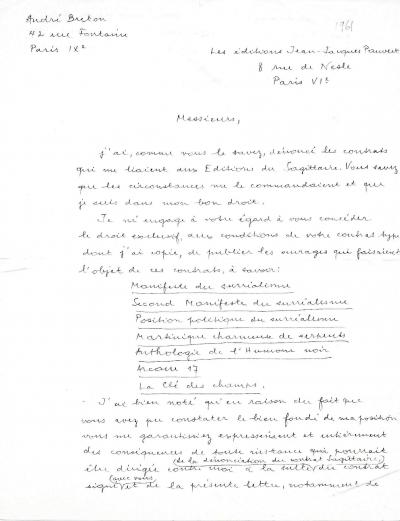 André Breton
42 rue Fontaine
Paris IXe
1961
Les éditions Jean-Jacques Pauvert
8 rue de Nesle
Paris VIe
Messieurs,
j'ai, comme vous le savez, dénoncé les contrats
qui me liaient aux Editions du Sagittaire. Vous savez
que les circonstances me le commandaient et que
je suis dans mon bon droit.
Je m'engage à votre égard à vous concéder
le droit exclusif, aux conditions de votre contrat type
dont j'ai copie, de publier les ouvrages qui faisaient
l'objet de ces contrats, à savoir:
Manifeste du surréalisme
Second Manifeste du surréalisme
Position politique du surréalisme
Martinique charmeuse de serpents
Anthologie de l'Humour noir
Arcane 17
La Clé des champs.
J'ai bien noté qu'en raison du fait que
vous avez pu constater le bien fondé de ma position
vous me garantissiez expressément et entièrement
des conséquences de toute instance qui pourrait
(de la dénonciation du contrat Sagittaire,)
être dirigée contre moi à la suite du contrat
(avec vous)
signé et de la présente lettre, notamment de